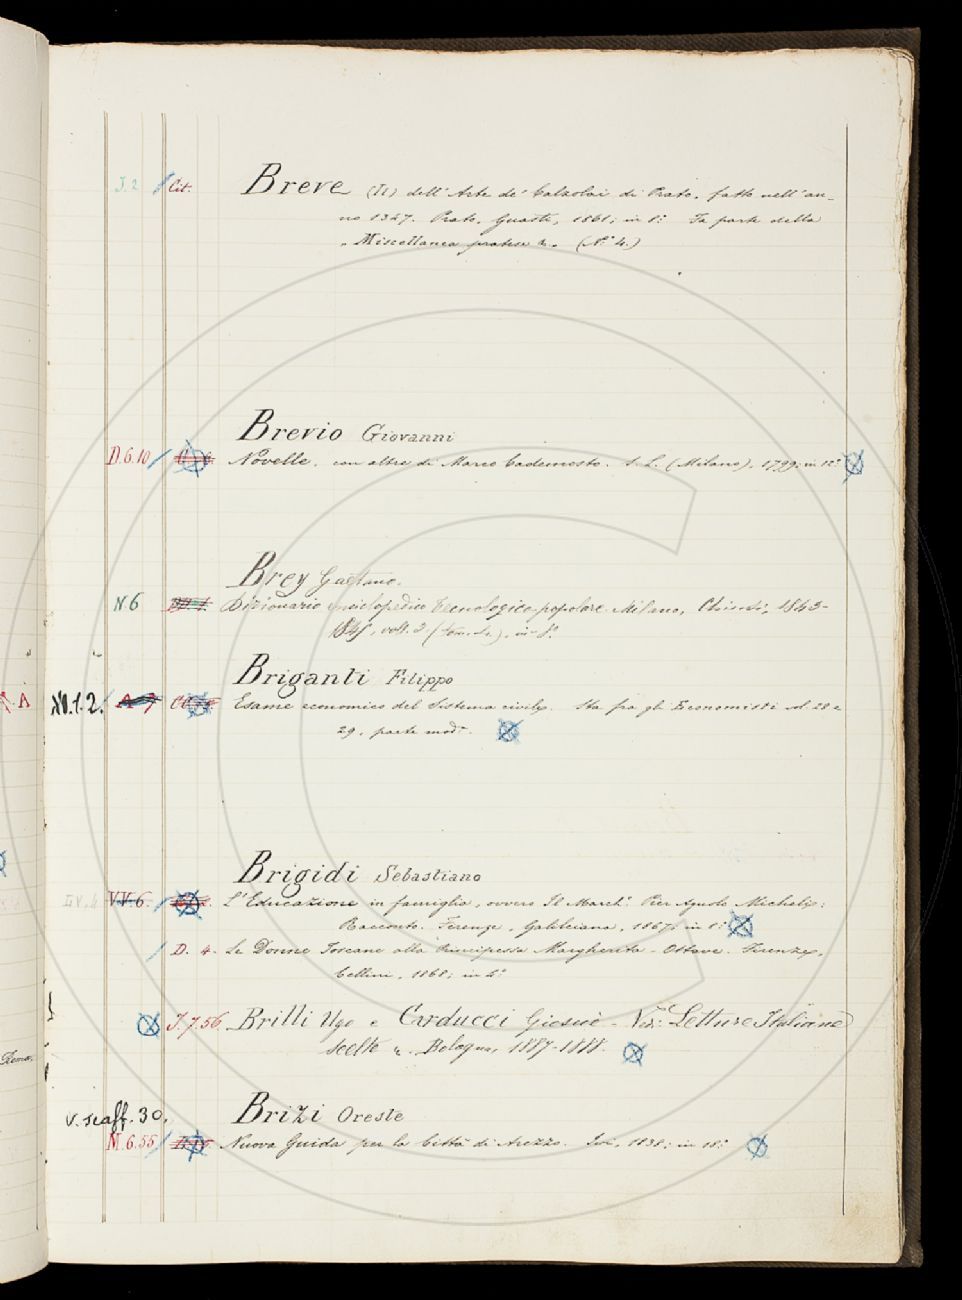 J.2 Cit. Breve (Il) dell'Arte de' Calzolai di Prato, fatto nell'an-
no 1347. Prato, Guasti, 1861; in 8º. Fa parte della
"Miscellanea pratese &. (Nº 4.)
Brevio Giovanni
D.6.10 Novelle, con altre di Marco Cademosto. S. L. (Milano), 1799; in 12º
Brey Gaetano.
N.6 Dizionario enciclopedico tecnologico-popolare. Milano, 1843-
voll. 2. in-8º.
Briganti Filippo
A-7 Esame economico del Sistema civile. Sta fra gli Economisti vol. 28 e
29, parte modª.
Brigidi Sebastiano
VV.6. L'Educazione in famiglia, ovvero Il March. Pier Agnolo
Racconto. Firenze, Galileiana, 1867; in 8º
D. 4. Le Donne Toscane alla Principessa Margherita - Ottave. Firenze,
Cellini, 1868; in 4º
J.7.56 Brilli Ugo e Carducci Giosuè - Vedi: Letture Italiane
scelte &. Bologna, 1887-1888.
V. scaff. 30. Brizi Oreste
M.6.55 Nuova Guida per la Città di Arezzo. 1838; in 18º